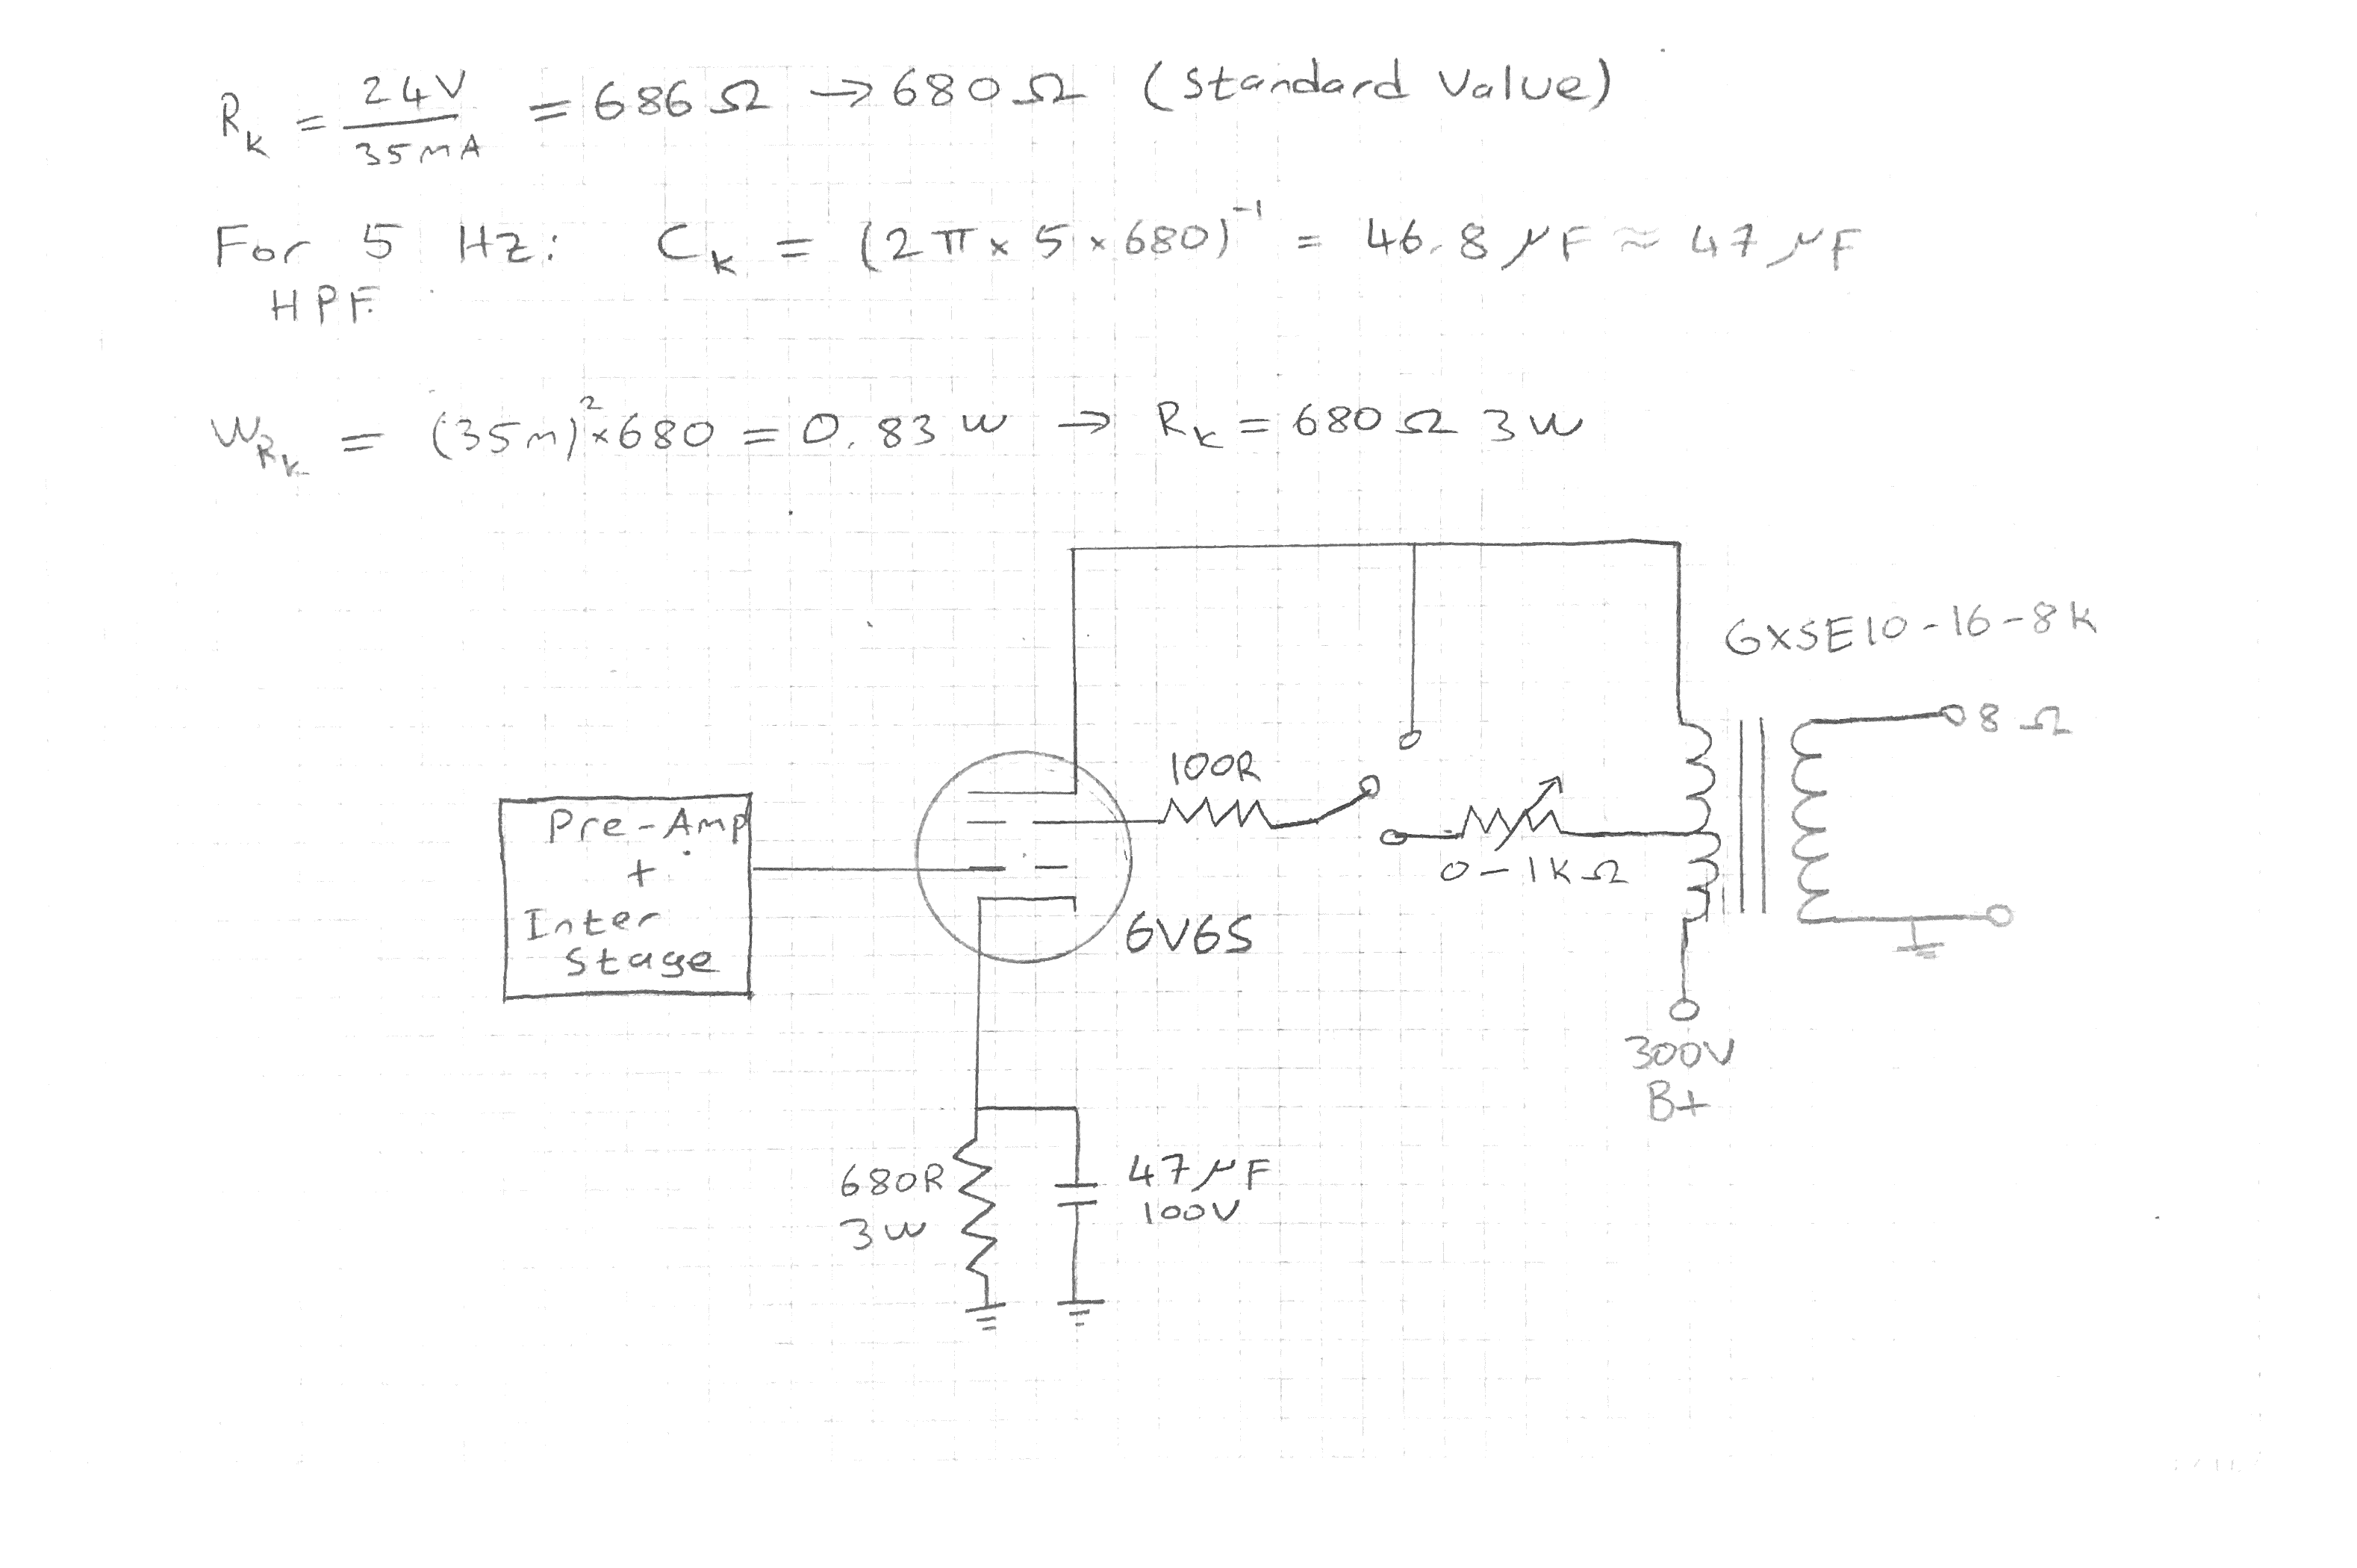 R_k = 24V / 35mA = 686 Ω → 680 Ω (Standard Value)
For 5 Hz: C_k = (2π × 5 × 680)⁻¹ = 46.8 μF ≈ 47 μF
HPF
W_Rk = (35m)² × 680 = 0.83 W → R_k = 680 Ω 3W
GXSE10-16-8k
8 Ω
100R
Pre-Amp
+
Inter
Stage
0-1KΩ
6V6S
300V
B+
680R
3W
47 μF
100V